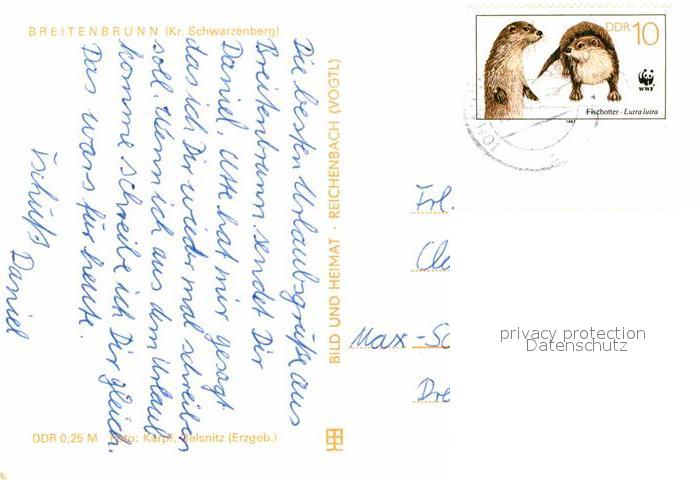 BREITENBRUNN (Kr. Schwarzenberg)
Die besten Urlaubsgrüße aus
Breitenbrunn sendet Dir
Daniel. Utte hat mir gesagt
das ich Dir wieder mal schreiben
soll. Wenn ich aus dem Urlaub
komme schreibe ich Dir gleich.
Das wars für heute.
Tschüß Daniel
DDR 0,25 M Foto: Karpf, Oelsnitz (Erzgeb.)
BILD UND HEIMAT · REICHENBACH (VOGTL)
DDR 10
WWF
Fischotter · Lutra lutra
1987
Frl.
Cla
Max-Sc
Dre
privacy protection
Datenschutz